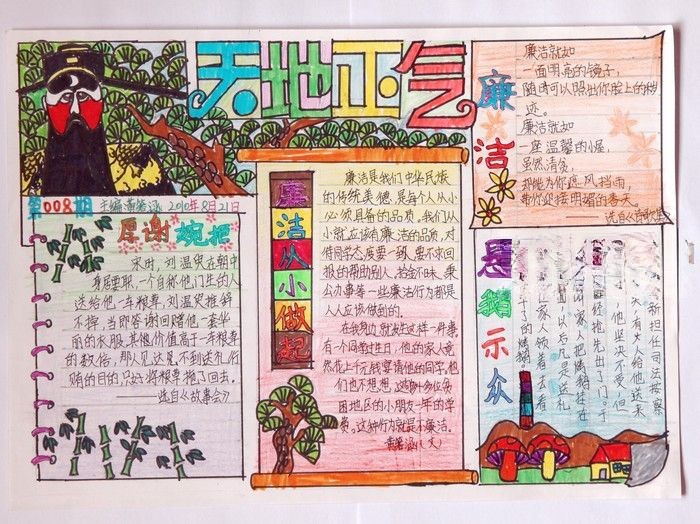 天地正气
第008期
2010年8月21日
厚谢婉拒
宋时，刘温叟在朝中
身居要职，一个自称他门生的人
送给他一车粮草，刘温叟推辞
不掉，当即答谢回赠他一套华
丽的衣服，其价值高于一车粮草
的数倍，那人见达不到送礼行
贿的目的，只好将粮草拖了回去。
——选自《故事会》
廉洁从小做起
廉洁是我们中华民族
的传统美德，是每个人从小
必须具备的品质，我们从
小就应该有廉洁的品质，对
待同学态度要一致，要不求回
报的帮助别人，拾金不昧，秉
公办事等一些廉洁行为都是
人人应该做到的。
在我身边就发生这样一件事
有一个同学过生日，他的家人竟
然花上千元钱宴请他的同学，他
们也不想想，这够多少位贫
困地区的小朋友一年的学
费。这种行为就是不廉洁。
廉洁
廉洁就如
一面明亮的镜子，
随时可以照出你脸上的秽
迹。
廉洁就如
一座温馨的小屋，
虽然清贫，
却能为你遮风挡雨，
带你迎接明媚的春天。
悬鹅示众
新担任司法按察
有人给他送来
他坚决不受，但
经抢先出了门。于
叫家人把烤鹅挂在
以后凡是送礼
让家人领着去看
干了的烤鹅。